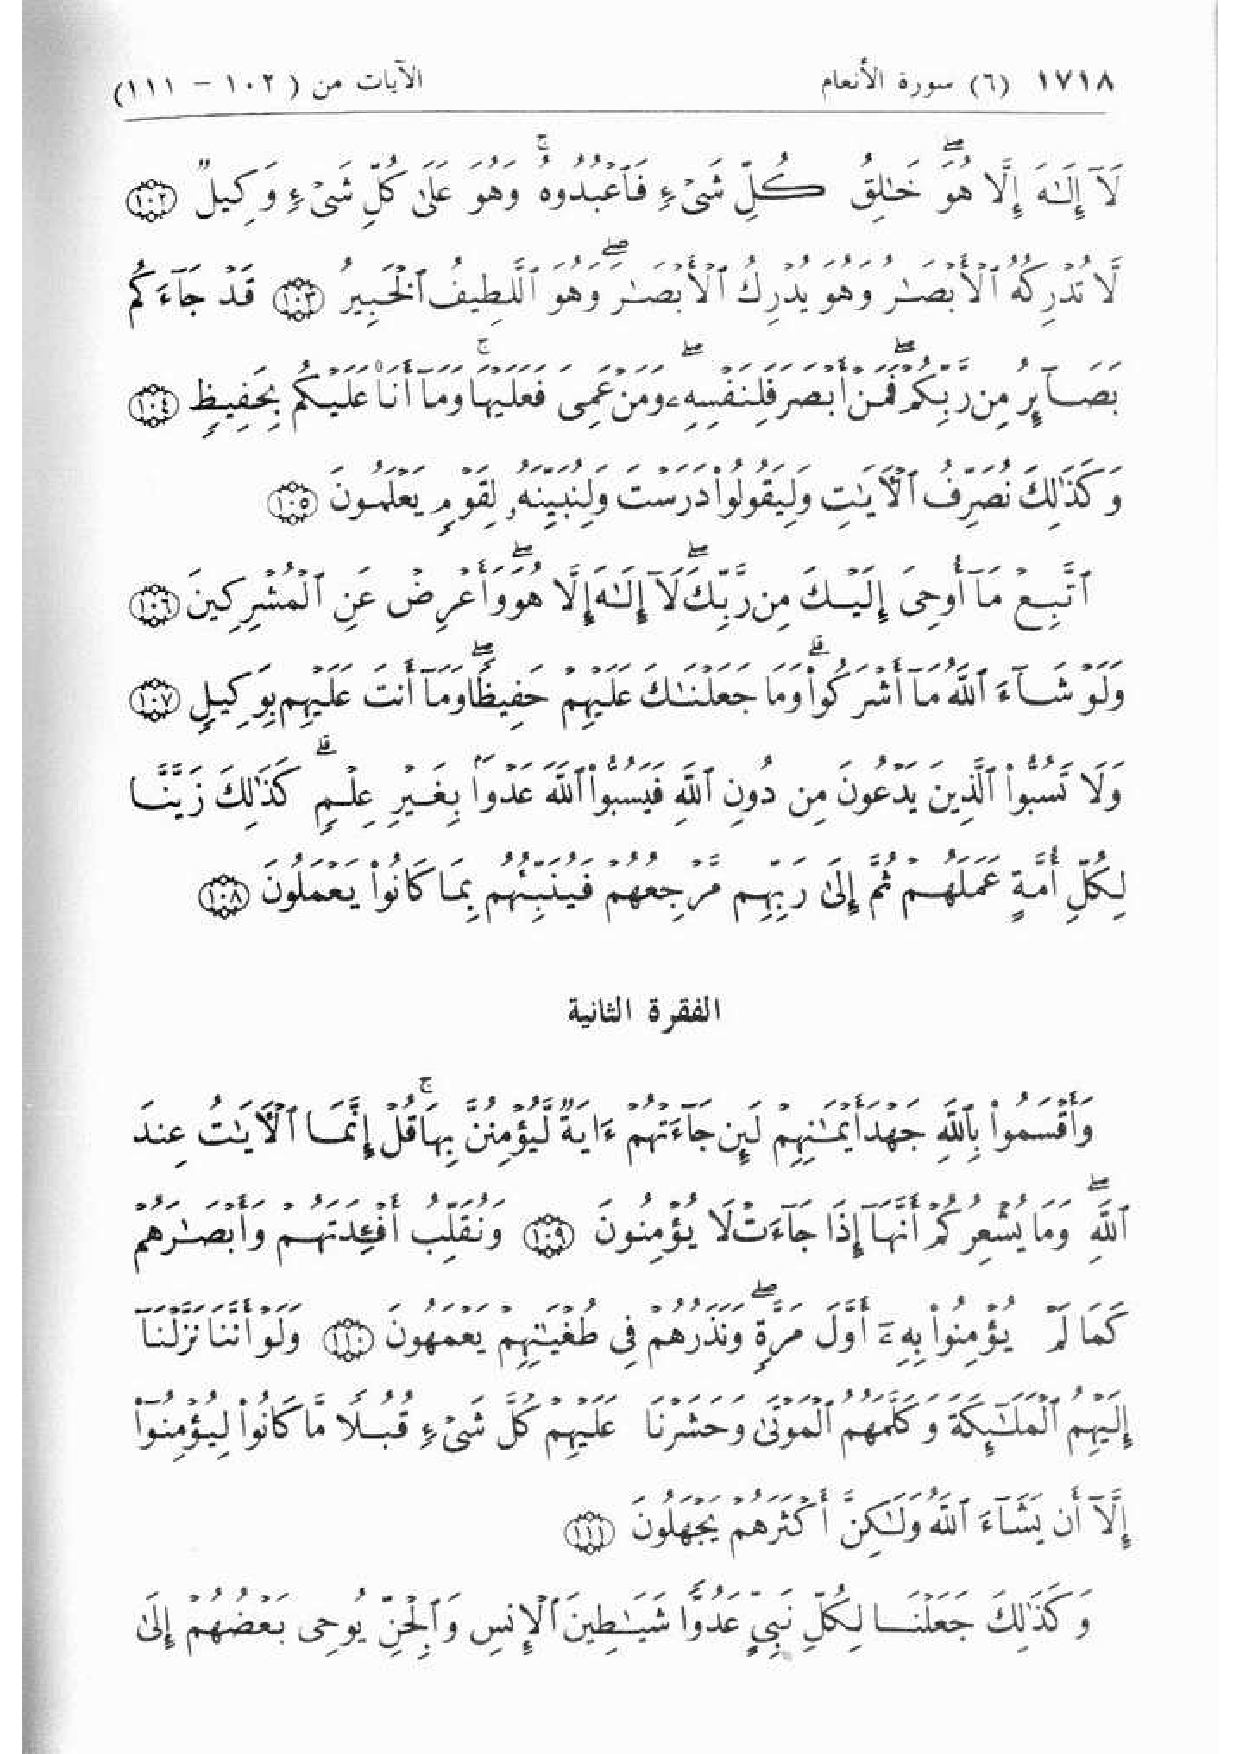 ١٧١٨ (٦) سورة الأنعام الآيات من ( ١٠٢ - ١١١)
لَآ إِلَٰهَ إِلَّا هُوَۖ خَٰلِقُ كُلِّ شَىْءٍ فَٱعْبُدُوهُۚ وَهُوَ عَلَىٰ كُلِّ شَىْءٍ وَكِيلٌ ۝١٠٢
لَّا تُدْرِكُهُ ٱلْأَبْصَٰرُ وَهُوَ يُدْرِكُ ٱلْأَبْصَٰرَۖ وَهُوَ ٱللَّطِيفُ ٱلْخَبِيرُ ۝١٠٣ قَدْ جَآءَكُم
بَصَآئِرُ مِن رَّبِّكُمْۖ فَمَنْ أَبْصَرَ فَلِنَفْسِهِۦۖ وَمَنْ عَمِىَ فَعَلَيْهَاۚ وَمَآ أَنَا۠ عَلَيْكُم بِحَفِيظٍ ۝١٠٤
وَكَذَٰلِكَ نُصَرِّفُ ٱلْءَايَٰتِ وَلِيَقُولُوا۟ دَرَسْتَ وَلِنُبَيِّنَهُۥ لِقَوْمٍ يَعْلَمُونَ ۝١٠٥
ٱتَّبِعْ مَآ أُوحِىَ إِلَيْكَ مِن رَّبِّكَۖ لَآ إِلَٰهَ إِلَّا هُوَۖ وَأَعْرِضْ عَنِ ٱلْمُشْرِكِينَ ۝١٠٦
وَلَوْ شَآءَ ٱللَّهُ مَآ أَشْرَكُوا۟ۗ وَمَا جَعَلْنَٰكَ عَلَيْهِمْ حَفِيظًاۖ وَمَآ أَنتَ عَلَيْهِم بِوَكِيلٍ ۝١٠٧
وَلَا تَسُبُّوا۟ ٱلَّذِينَ يَدْعُونَ مِن دُونِ ٱللَّهِ فَيَسُبُّوا۟ ٱللَّهَ عَدْوًۢا بِغَيْرِ عِلْمٍۗ كَذَٰلِكَ زَيَّنَّا
لِكُلِّ أُمَّةٍ عَمَلَهُمْ ثُمَّ إِلَىٰ رَبِّهِم مَّرْجِعُهُمْ فَيُنَبِّئُهُم بِمَا كَانُوا۟ يَعْمَلُونَ ۝١٠٨
الفقرة الثانية
وَأَقْسَمُوا۟ بِٱللَّهِ جَهْدَ أَيْمَٰنِهِمْ لَئِن جَآءَتْهُمْ ءَايَةٌ لَّيُؤْمِنُنَّ بِهَاۚ قُلْ إِنَّمَا ٱلْءَايَٰتُ عِندَ
ٱللَّهِۖ وَمَا يُشْعِرُكُمْ أَنَّهَآ إِذَا جَآءَتْ لَا يُؤْمِنُونَ ۝١٠٩ وَنُقَلِّبُ أَفْـِٔدَتَهُمْ وَأَبْصَٰرَهُمْ
كَمَا لَمْ يُؤْمِنُوا۟ بِهِۦٓ أَوَّلَ مَرَّةٍۖ وَنَذَرُهُمْ فِى طُغْيَٰنِهِمْ يَعْمَهُونَ ۝١١٠ وَلَوْ أَنَّنَا نَزَّلْنَآ
إِلَيْهِمُ ٱلْمَلَٰٓئِكَةَ وَكَلَّمَهُمُ ٱلْمَوْتَىٰ وَحَشَرْنَا عَلَيْهِمْ كُلَّ شَىْءٍ قُبُلًا مَّا كَانُوا۟ لِيُؤْمِنُوٓا۟
إِلَّآ أَن يَشَآءَ ٱللَّهُ وَلَٰكِنَّ أَكْثَرَهُمْ يَجْهَلُونَ ۝١١١
وَكَذَٰلِكَ جَعَلْنَا لِكُلِّ نَبِىٍّ عَدُوًّا شَيَٰطِينَ ٱلْإِنسِ وَٱلْجِنِّ يُوحِى بَعْضُهُمْ إِلَىٰ